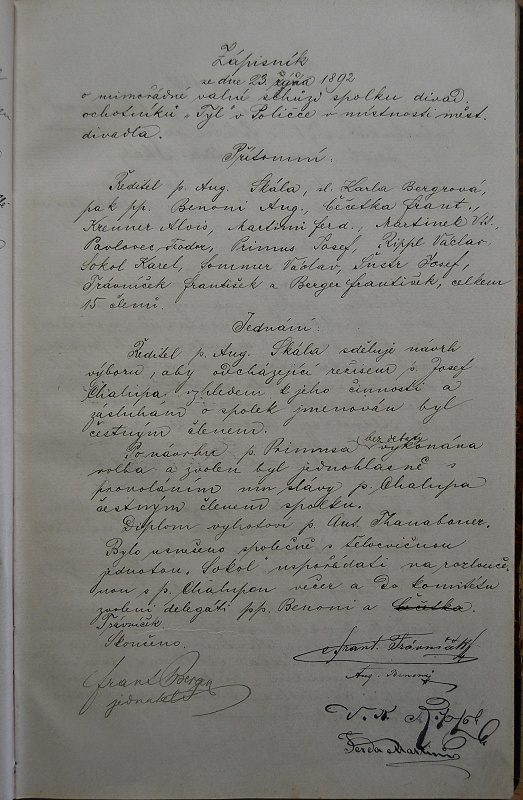 Zápisník
ze dne 23. října 1892
o mimořádné valné schůzi spolku divad.
ochotníků „Tyl" v Poličce v místnosti měst.
divadla.
Přítomni:
Ředitel p. Aug. Skála, sl. Karla Bergrová,
pak pp. Benoni Aug., Čéčetka Frant.,
Krenner Alois, Martini Ferd., Martinek Vil.,
Pavlovec Fedor, Primus Josef, Rippl Václav
Sokol Karel, Sommer Václav, Josef,
Trávníček František a Berger František, celkem
15 členů.
Jednání:
Ředitel p. Aug. Skála sděluje návrh
výboru, aby odcházející režiseur p. Josef
Chalupa vzhledem k jeho činnosti a
zásluhám o spolek jmenován byl
čestným členem.
Po návrhu p. Primusa bez debaty vykonána
volba a zvolen byl jednohlasně s
provoláním mu slávy p. Chalupa
čestným členem spolku.
Diplom vyhotoví p. Ant. Thanabauer.
Bylo usneseno společně s tělocvičnou
jednotou Sokol uspořádati na rozlouče-
nou s p. Chalupou večer a do komitétu
zvoleni delegáti pp. Benoni a Čéčetka.
Trávníček
Skončeno.
Frant. Berger
jednatel
Frant. Trávníček
Aug. Benoni
V. Rippl
Ferda Martini